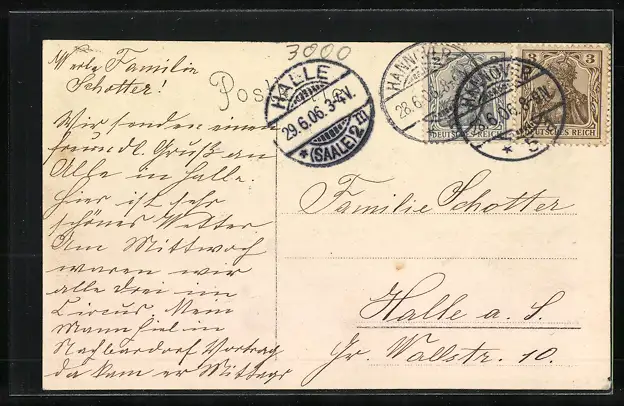 3000
Werte Familie
Schotter!
Wir senden einen
freundl. Gruß an
Alle in Halle.
Hier ist sehr
schönes Wetter.
Am Mittwoch
waren wir
alle drei im
Circus. Mein
Mann hielt in
Nachbardorf Vortrag
da kam er Mittags
HALLE
29.6.06. 3-4V.
*(SAALE)2
HANNOVER
28.6.06. 8-9N.
HANNOVER
.6.06. 8-9N.
* 5
DEUTSCHES REICH
3 3
DEUTSCHES REICH
Familie Schotter
Halle a. S.
Gr. Wallstr. 10.